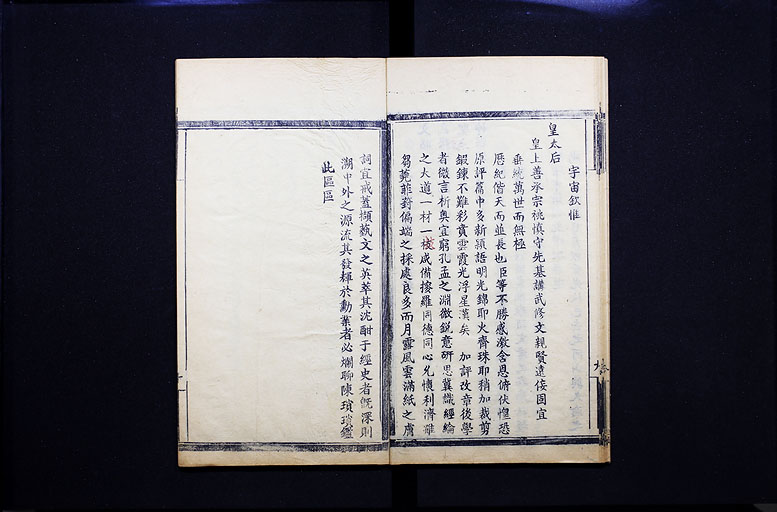 宇宙欽惟
皇太后
皇上善承宗祧慎守先基講武修文親賢遠佞固宜
垂統萬世而無極
歷紀偕天而並長也臣等不勝感激含恩俯伏惶恐
原評篇中多新穎語明光錦耶火齊珠耶稍加裁剪
鍛鍊不難彩貫雲霞光浮星漢矣 加評改章後學
者微言析奧宜窮孔孟之淵微銳意研思冀識經綸
之大道一材一技咸備搜羅同德同心允懷利濟雖
芻蕘菲葑偏端之採處良多而月露風雲滿紙之膚
詞宜戒蓋擷藝文之英萃其沈酣于經史者既深則
溯中外之源流其發輝於勳業者必爛聊陳瑣瑣鑑
此區區